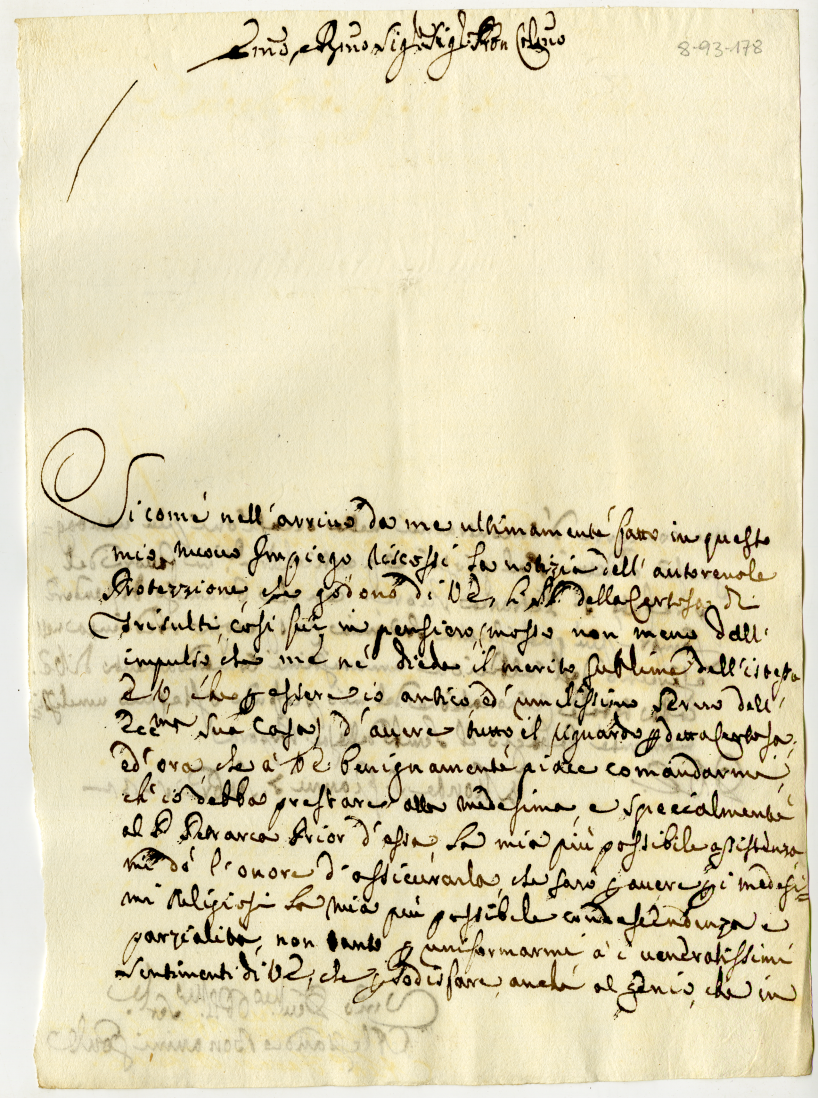 Emo, e Rmo Sigr. Sigr. Pron Colmo
8-93-178
Sicome nell'arrivo da me ultimamente fatto in questo
mio nuovo Impiego riscossi la notizia dell'autorevole
Protezzione, che godono di VE, li PP. della Certosa di
Trisulti, così fui in pensiero (mosso non meno dall'
impulso, che me ne diede il merito sublime dell'istessa
E V che p essere io antico ed' umilissimo servo dell'
Ecc.ma sua Casa) d'avere tutto il riguardo p detta Certosa;
ed' ora, che à VE benignamente piace comandarmi,
ch'io debba prestare alla medesima, e specialmente
al P. Petrarca Prior d'essa la mia più possibile assistenza
mi dò l'onore d'assicurarla, che sarò p avere p i medesi=
mi Religiosi la mia più possibile condescendenza e
parzialità, non tanto p uniformarmi à i veneratissimi
sentimenti di VE, che p sodisfare anche al genio, che in